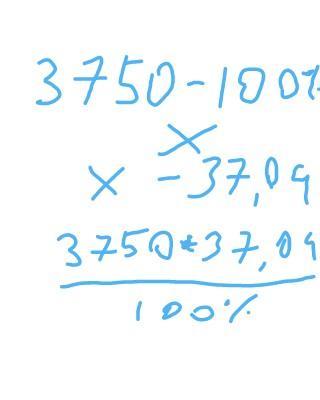 3750-100%
×
× -37,09
3750*37,09
100%